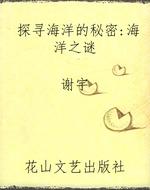 探寻海洋的秘密:海
洋之谜
谢宇
花山文艺出版社